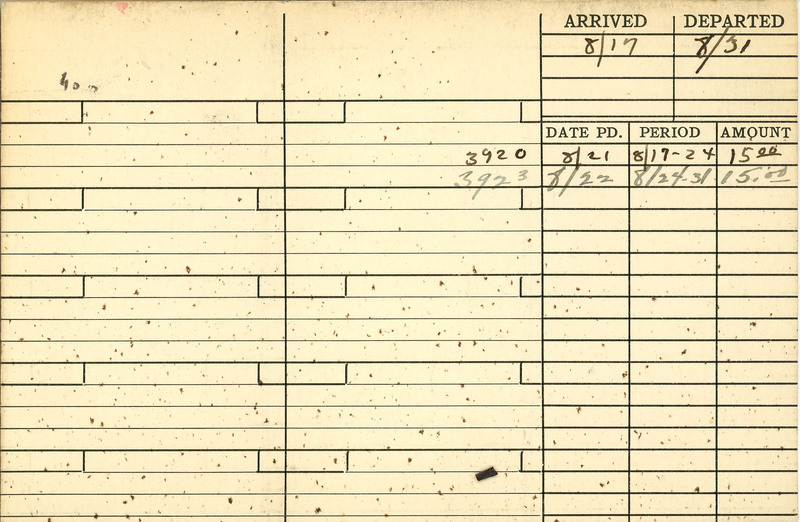 ARRIVED DEPARTED
8/17 8/31
DATE PD. PERIOD AMOUNT
3920 8/21 8/17-24 15 00
3923 8/22 8/24-31 15.00